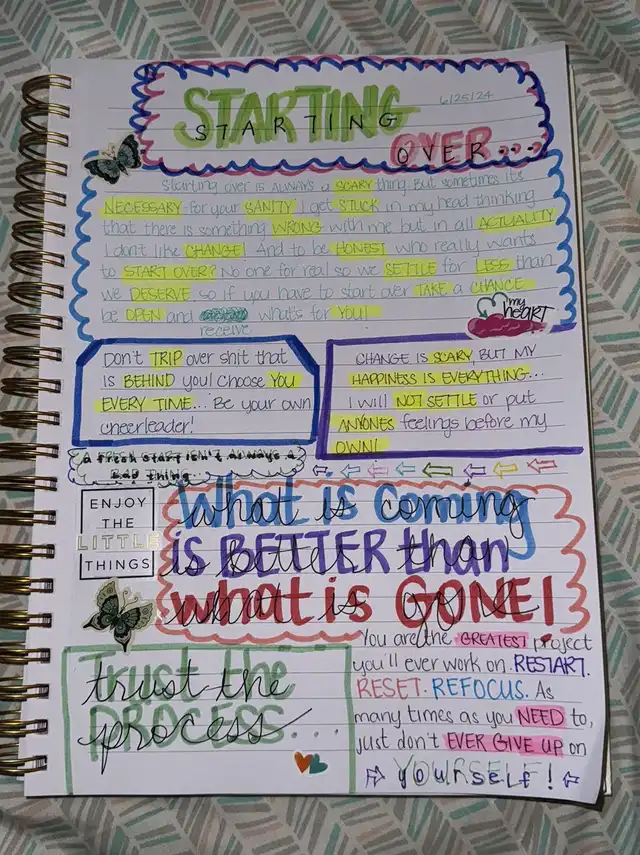 6/25/24
STARTING
STARTING
OVER...
Starting over is ALWAYS a SCARY thing. But sometimes its
NECESSARY for your SANITY. I get STUCK in my head thinking
that there is something WRONG with me but in all ACTUALITY
I don't like CHANGE! And to be HONEST who really wants
to START OVER? No one for real so we SETTLE for LESS than
we DESERVE so if you have to start over TAKE a CHANCE
be OPEN and what's for YOU!
receive
my
heART
Don't TRIP over shit that
is BEHIND you! Choose YOU
EVERY TIME... Be your own
cheerleader!
CHANGE IS SCARY, BUT MY
HAPPINESS IS EVERYTHING...
I will NOT SETTLE or put
ANYONES feelings before my
OWN!
A FRESH START ISN'T ALWAYS A
BAD THING...
ENJOY
THE
LITTLE
THINGS
What is coming
is BETTER than
what is GONE!
You are the GREATEST project
you'll ever work on. RESTART.
RESET. REFOCUS. As
many times as you NEED to,
just don't EVER GIVE UP on
yourself!
Trust the...
trust the
PROCESS...
process...